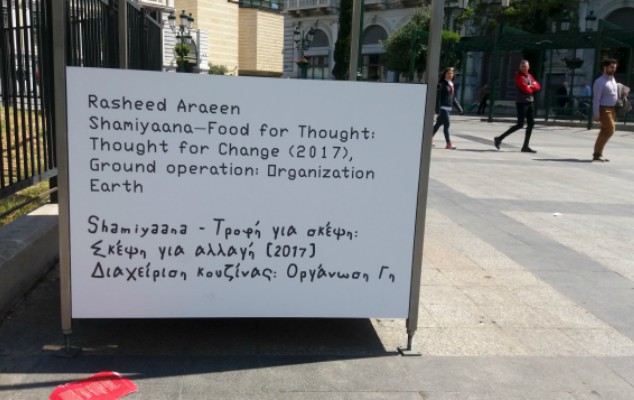 Rasheed Araeen
Shamiyaana—Food for Thought:
Thought for Change (2017),
Ground operation: Organization
Earth
Shamiyaana - Τροφή για σκέψη:
Σκέψη για αλλαγή [2017]
Διαχείριση κουζίνας: Οργάνωση Γη